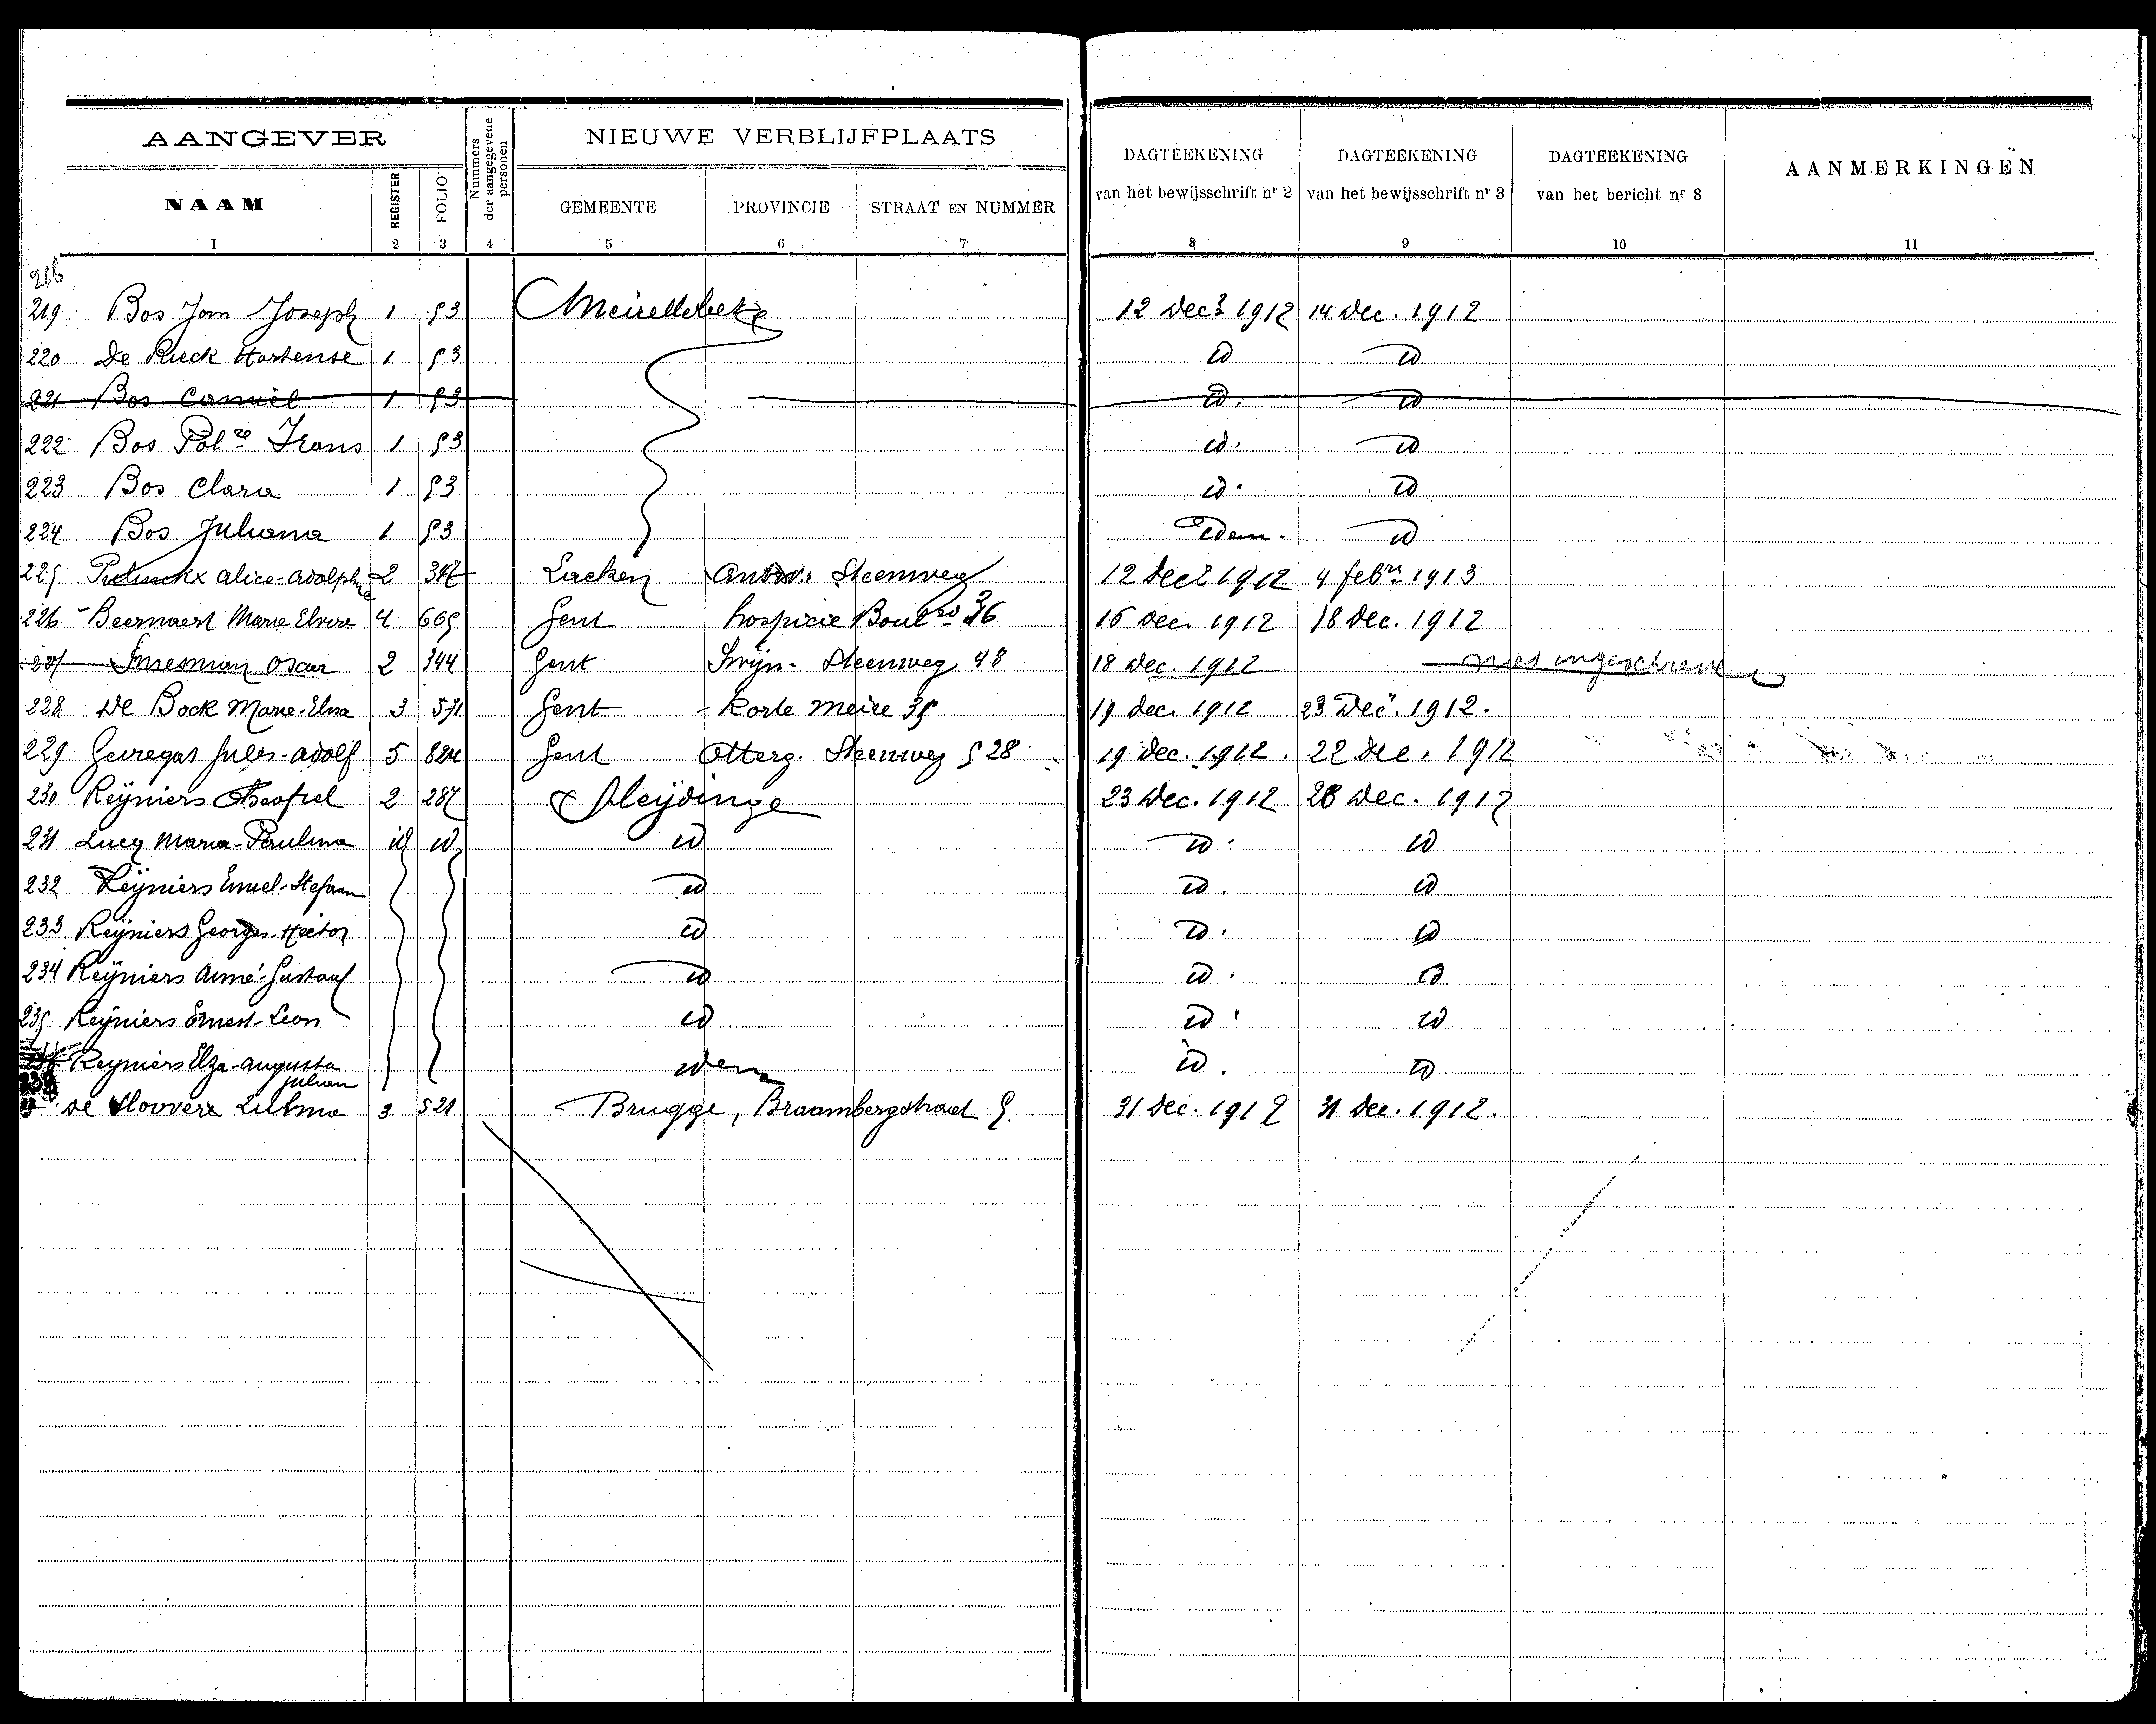 AANGEVER
Nummers der aangegevene personen
NIEUWE VERBLIJFPLAATS
DAGTEEKENING van het bewijsschrift nr 2
DAGTEEKENING van het bewijsschrift nr 3
DAGTEEKENING van het bericht nr 8
AANMERKINGEN
NAAM REGISTER FOLIO GEMEENTE PROVINCIE STRAAT EN NUMMER
1 2 3 4 5 6 7 8 9 10 11
219 Bos Joseph 1 53 Meirelbeke 12 Dec 1912 14 Dec. 1912
220 De Rieck Hortense 1 53 id id
221 Bos Camiel 1 53 id. id
222 Bos Frans 1 53 id. id
223 Bos Clara 1 53 id. id
224 Bos Juliana 1 53 Idem. id
225 Alice-Adolphe 2 Laeken Antw. Steenweg 12 Dec 1912 4 febr 1913
226 Beernaert Marie Elvire 4 665 Gent hospicie 16 dec 1912 18 Dec. 1912
Oscar 2 344 Gent Steenweg 48 18 Dec. 1912 niet ingeschreven
228 De Bock Marie-Elisa 3 571 Gent Korte meire 35 19 dec. 1912 23 Dec. 1912.
229 Jules-Adolf 5 824 Gent Otterg. Steenweg 528 19 Dec. 1912. 22 Dec. 1912
230 Reÿniers Theofiel 2 287 Sleÿdinge 23 Dec. 1912 28 Dec. 1912
231 Lucq Maria-Paulina id id id id id
232 Reÿniers Emiel-Stefaan id id. id
233 Reÿniers Georges-Hector id id. id
234 Reÿniers Aimé-Gustaaf id id. id
235 Reÿniers Ernest-Leon id id id
Reyniers Elza-Augusta Julian idem id. id
De Sloovere 3 521 Brugge, Braambergstraat 5. 31 Dec. 1912 31 Dec. 1912.